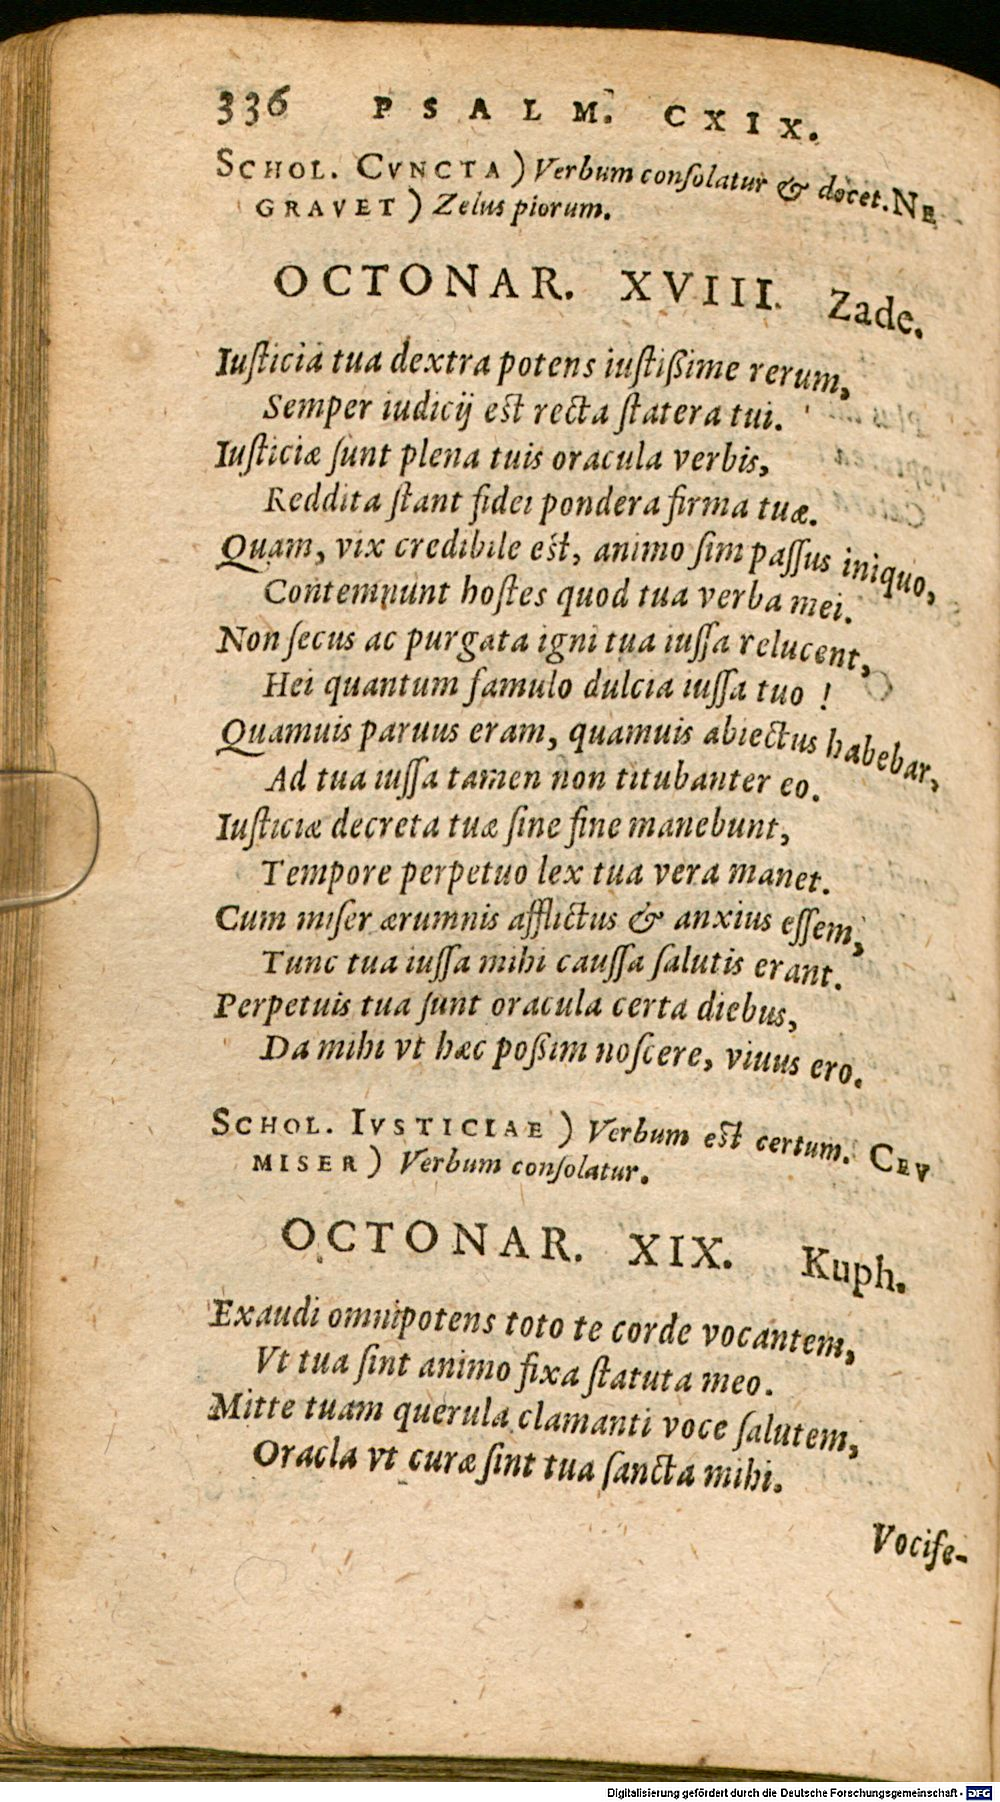 336 PSALM. CXIX.
SCHOL. CVNCTA) Verbum conſolatur & docet. NE
GRAVET) Zelus piorum.
OCTONAR. XVIII. Zade.
Iuſticia tua dextra potens iuſtißime rerum,
Semper iudicij est recta ſtatera tui.
Iuſticiæ ſunt plena tuis oracula verbis,
Reddita ſtant fidei pondera firma tuæ.
Quam, vix credibile est, animo ſim paſſus iniquo,
Contemnunt hoſtes quod tua verba mei.
Non ſecus ac purgata igni tua iuſſa relucent,
Hei quantum famulo dulcia iuſſa tuo !
Quamuis paruus eram, quamuis abiectus habebar,
Ad tua iuſſa tamen non titubanter eo.
Iuſticiæ decreta tuæ ſine fine manebunt,
Tempore perpetuo lex tua vera manet.
Cum miſer ærumnis afflictus & anxius eſſem,
Tunc tua iuſſa mihi cauſſa ſalutis erant.
Perpetuis tua ſunt oracula certa diebus,
Da mihi vt hæc poßim noſcere, viuus ero.
SCHOL. IVSTICIAE) Verbum est certum. CEV
MISER) Verbum conſolatur.
OCTONAR. XIX. Kuph.
Exaudi omnipotens toto te corde vocantem,
Vt tua ſint animo fixa ſtatuta meo.
Mitte tuam querula clamanti voce ſalutem,
Oracla vt curæ ſint tua ſancta mihi.
Vocife-
Digitalisierung gefördert durch die Deutsche Forschungsgemeinschaft - DFG